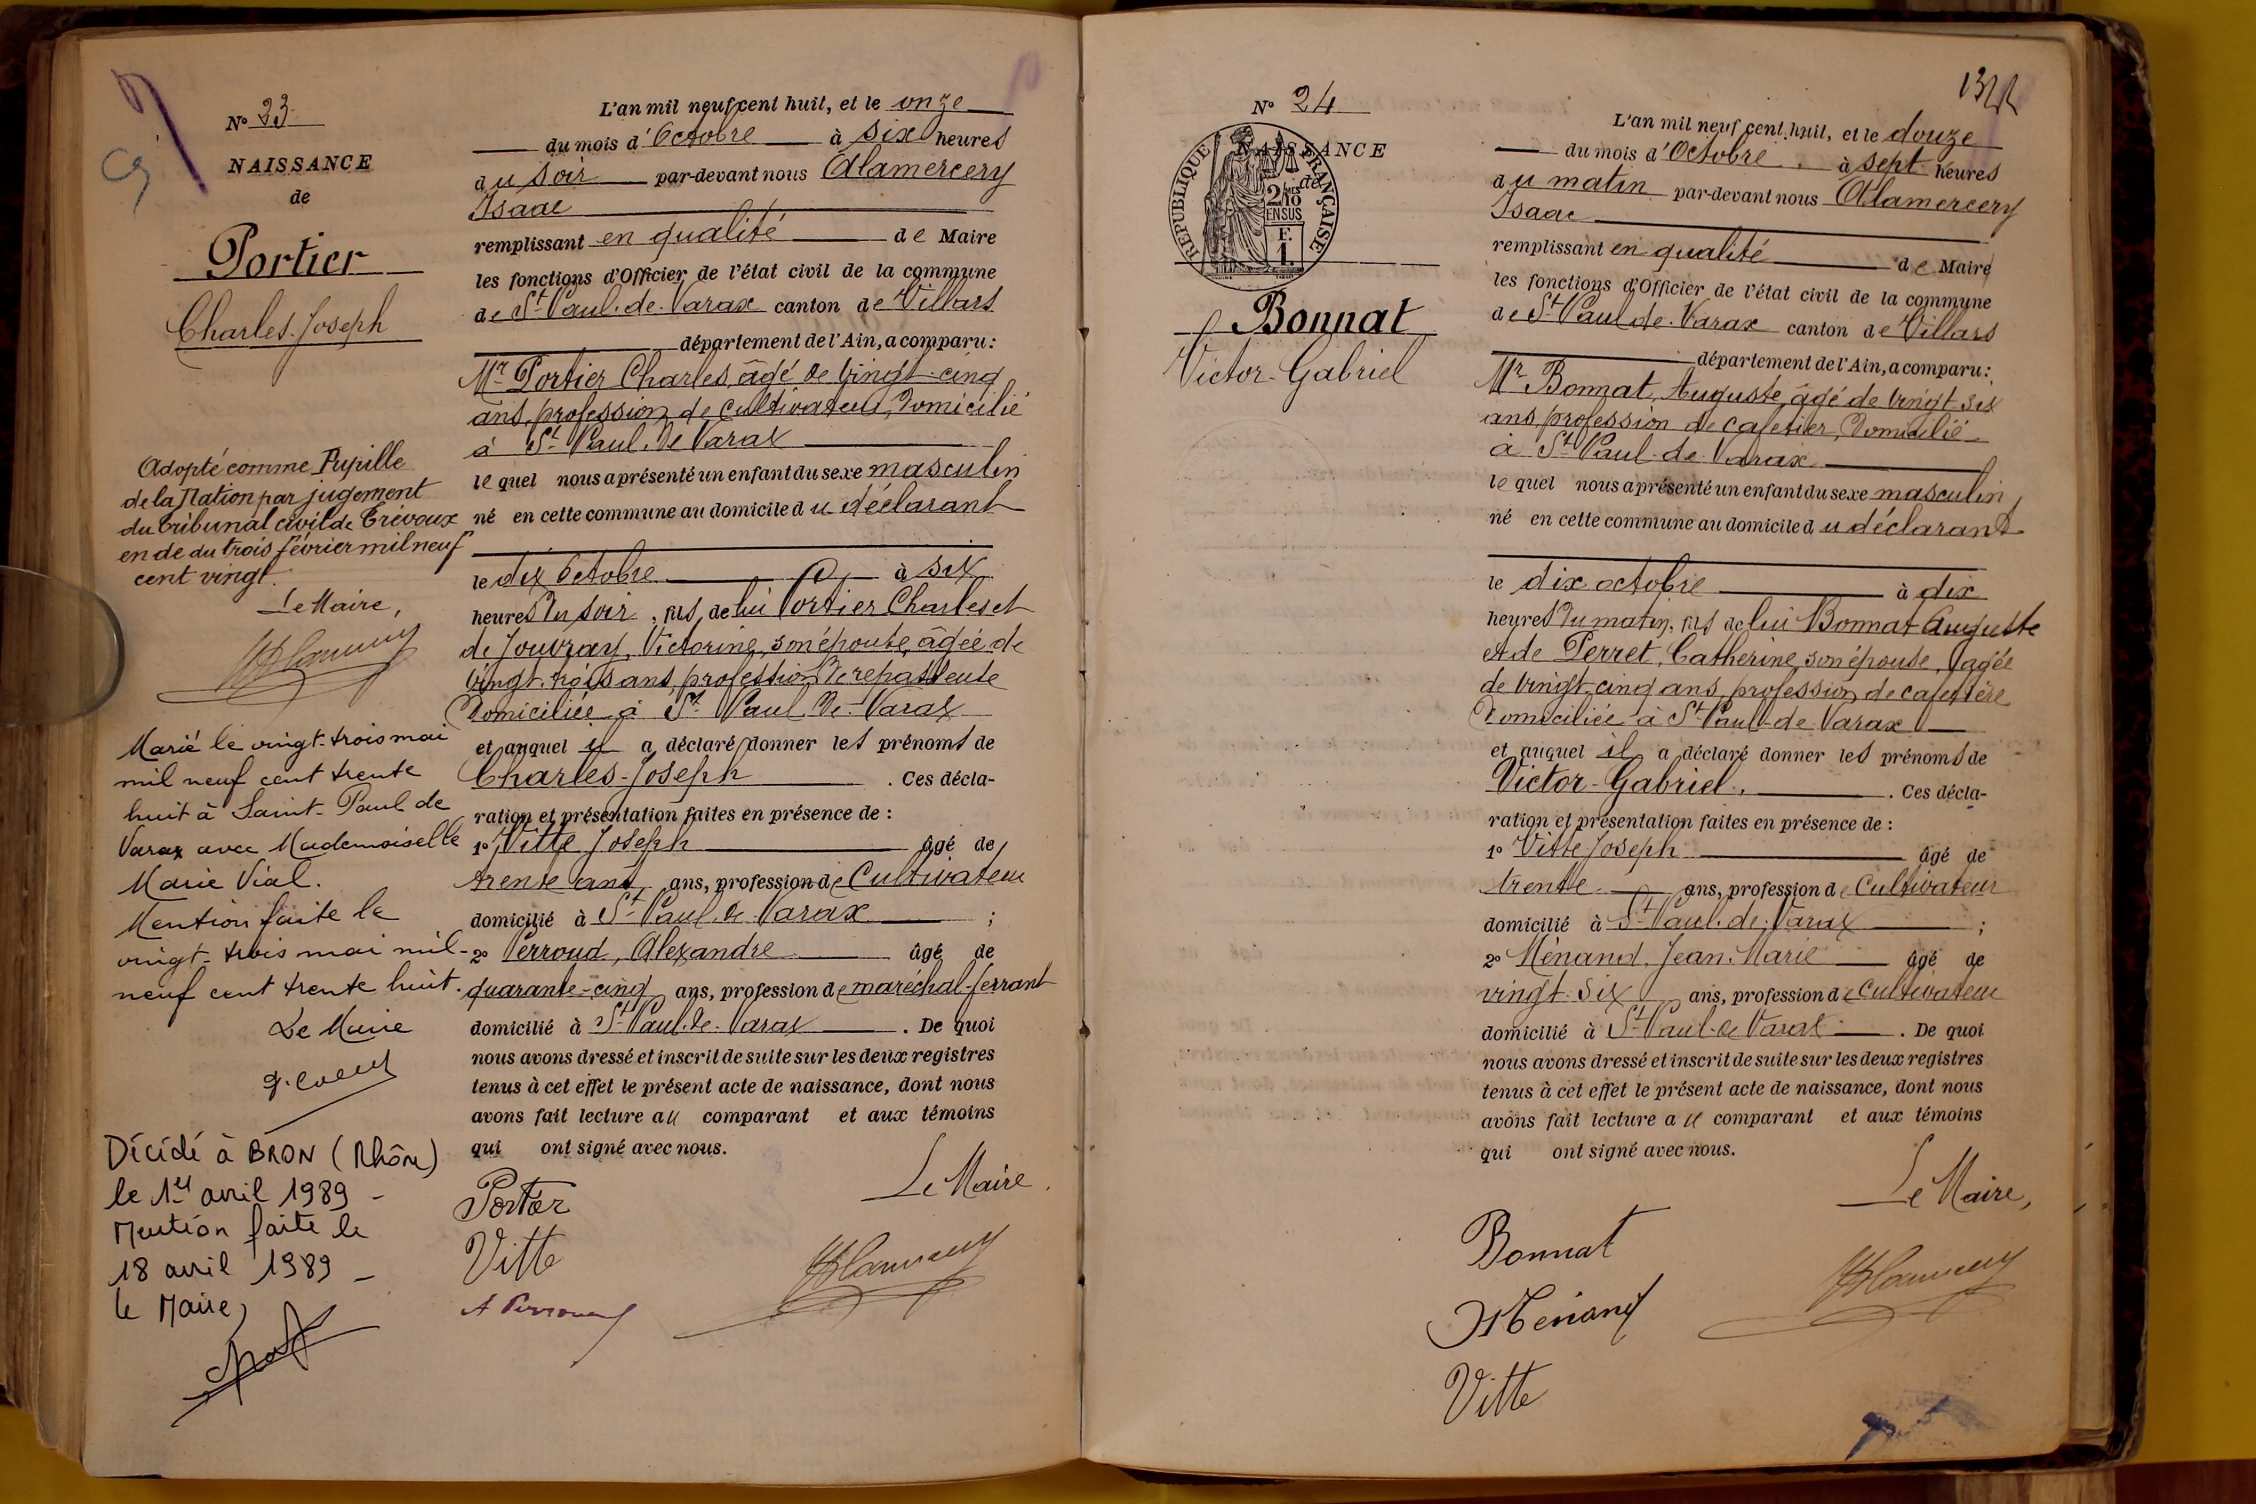 N° 23
NAISSANCE
de
Portier
Charles-Joseph
Adopté comme Pupille
de la Nation par jugement
du Tribunal civil de Trévoux
en de du trois février mil neuf
cent vingt.
Le Maire,
Marié le vingt-trois mai
mil neuf cent trente
huit à Saint-Paul de
Varax avec Mademoiselle
Marie Vial.
Mention faite le
vingt-trois mai mil-
neuf cent trente huit.
Le Maire
Décédé à BRON (Rhône)
le 1er avril 1989 -
Mention faite le
18 avril 1989 -
le Maire,
L'an mil neuf cent huit, et le onze
du mois d'Octobre à six heures
du soir par-devant nous Alamercery
Isaac
remplissant en qualité de Maire
les fonctions d'Officier de l'état civil de la commune
de St Paul-de-Varax canton de Villars
département de l'Ain, a comparu:
Mr Portier Charles, âgé de vingt-cinq
ans, profession de cultivateur, domicilié
à St Paul-de-Varax
lequel nous a présenté un enfant du sexe masculin
né en cette commune au domicile du déclarant
le dix Octobre à six
heures du soir, fils de lui Portier Charles et
de Jouvray, Victorine, son épouse, âgée de
vingt-trois ans, profession de repasseuse
domiciliée à St Paul-de-Varax
et auquel il a déclaré donner les prénoms de
Charles-Joseph . Ces décla-
ration et présentation faites en présence de :
1° Vitte Joseph âgé de
trente ans ans, profession de Cultivateur
domicilié à St Paul de Varax ;
2° Perroud, Alexandre âgé de
quarante-cinq ans, profession de maréchal-ferrant
domicilié à St Paul-de-Varax . De quoi
nous avons dressé et inscrit de suite sur les deux registres
tenus à cet effet le présent acte de naissance, dont nous
avons fait lecture au comparant et aux témoins
qui ont signé avec nous.
Le Maire.
Portier
Vitte
A Perroud
N° 24
NAISSANCE
de
REPUBLIQUE FRANÇAISE
2/10 MES
EN SUS
F.
1.
Bonnat
Victor-Gabriel
132
L'an mil neuf cent huit, et le douze
du mois d'Octobre, à sept heures
du matin par-devant nous Alamercery
Isaac
remplissant en qualité de Maire
les fonctions d'Officier de l'état civil de la commune
de St Paul de-Varax canton de Villars
département de l'Ain, a comparu:
Mr Bonnat, Auguste, âgé de vingt six
ans, profession de cafetier, domicilié
à St Paul-de-Varax
lequel nous a présenté un enfant du sexe masculin
né en cette commune au domicile du déclarant
le dix octobre à dix
heures du matin, fils de lui Bonnat Auguste
et de Perret, Catherine, son épouse, âgée
de vingt-cinq ans, profession de cafetière
domiciliée à St Paul-de-Varax
et auquel il a déclaré donner les prénoms de
Victor-Gabriel. . Ces décla-
ration et présentation faites en présence de :
1° Vitte Joseph âgé de
trente ans, profession de Cultivateur
domicilié à St Paul-de-Varax ;
2° Ménand, Jean-Marie âgé de
vingt-six ans, profession de Cultivateur
domicilié à St Paul-de Varax . De quoi
nous avons dressé et inscrit de suite sur les deux registres
tenus à cet effet le présent acte de naissance, dont nous
avons fait lecture au comparant et aux témoins
qui ont signé avec nous.
Le Maire,
Bonnat
Ménand
Vitte